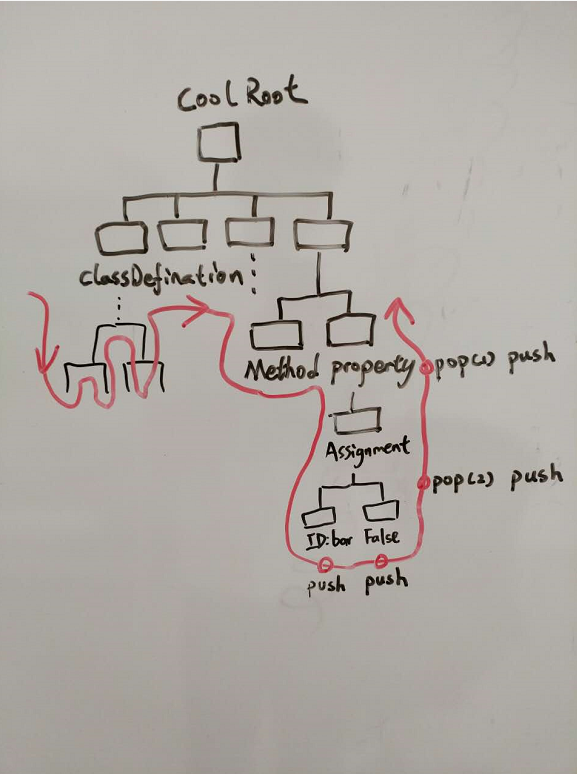 CoolRoot
classDefination
Method property
pop(1) push
Assignment
pop(2) push
ID:bar False
push push